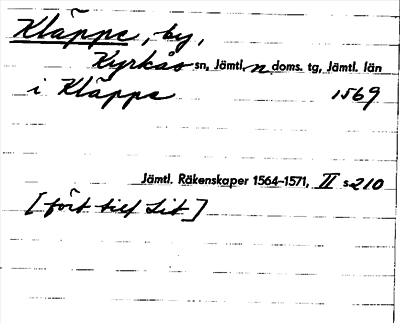 Kläppe, by,
Kyrkås sn, Jämtl. n. doms. tg, Jämtl. län
i Kläppe 1569
Jämtl. Räkenskaper 1564–1571, II s. 210
[fört till Lit]